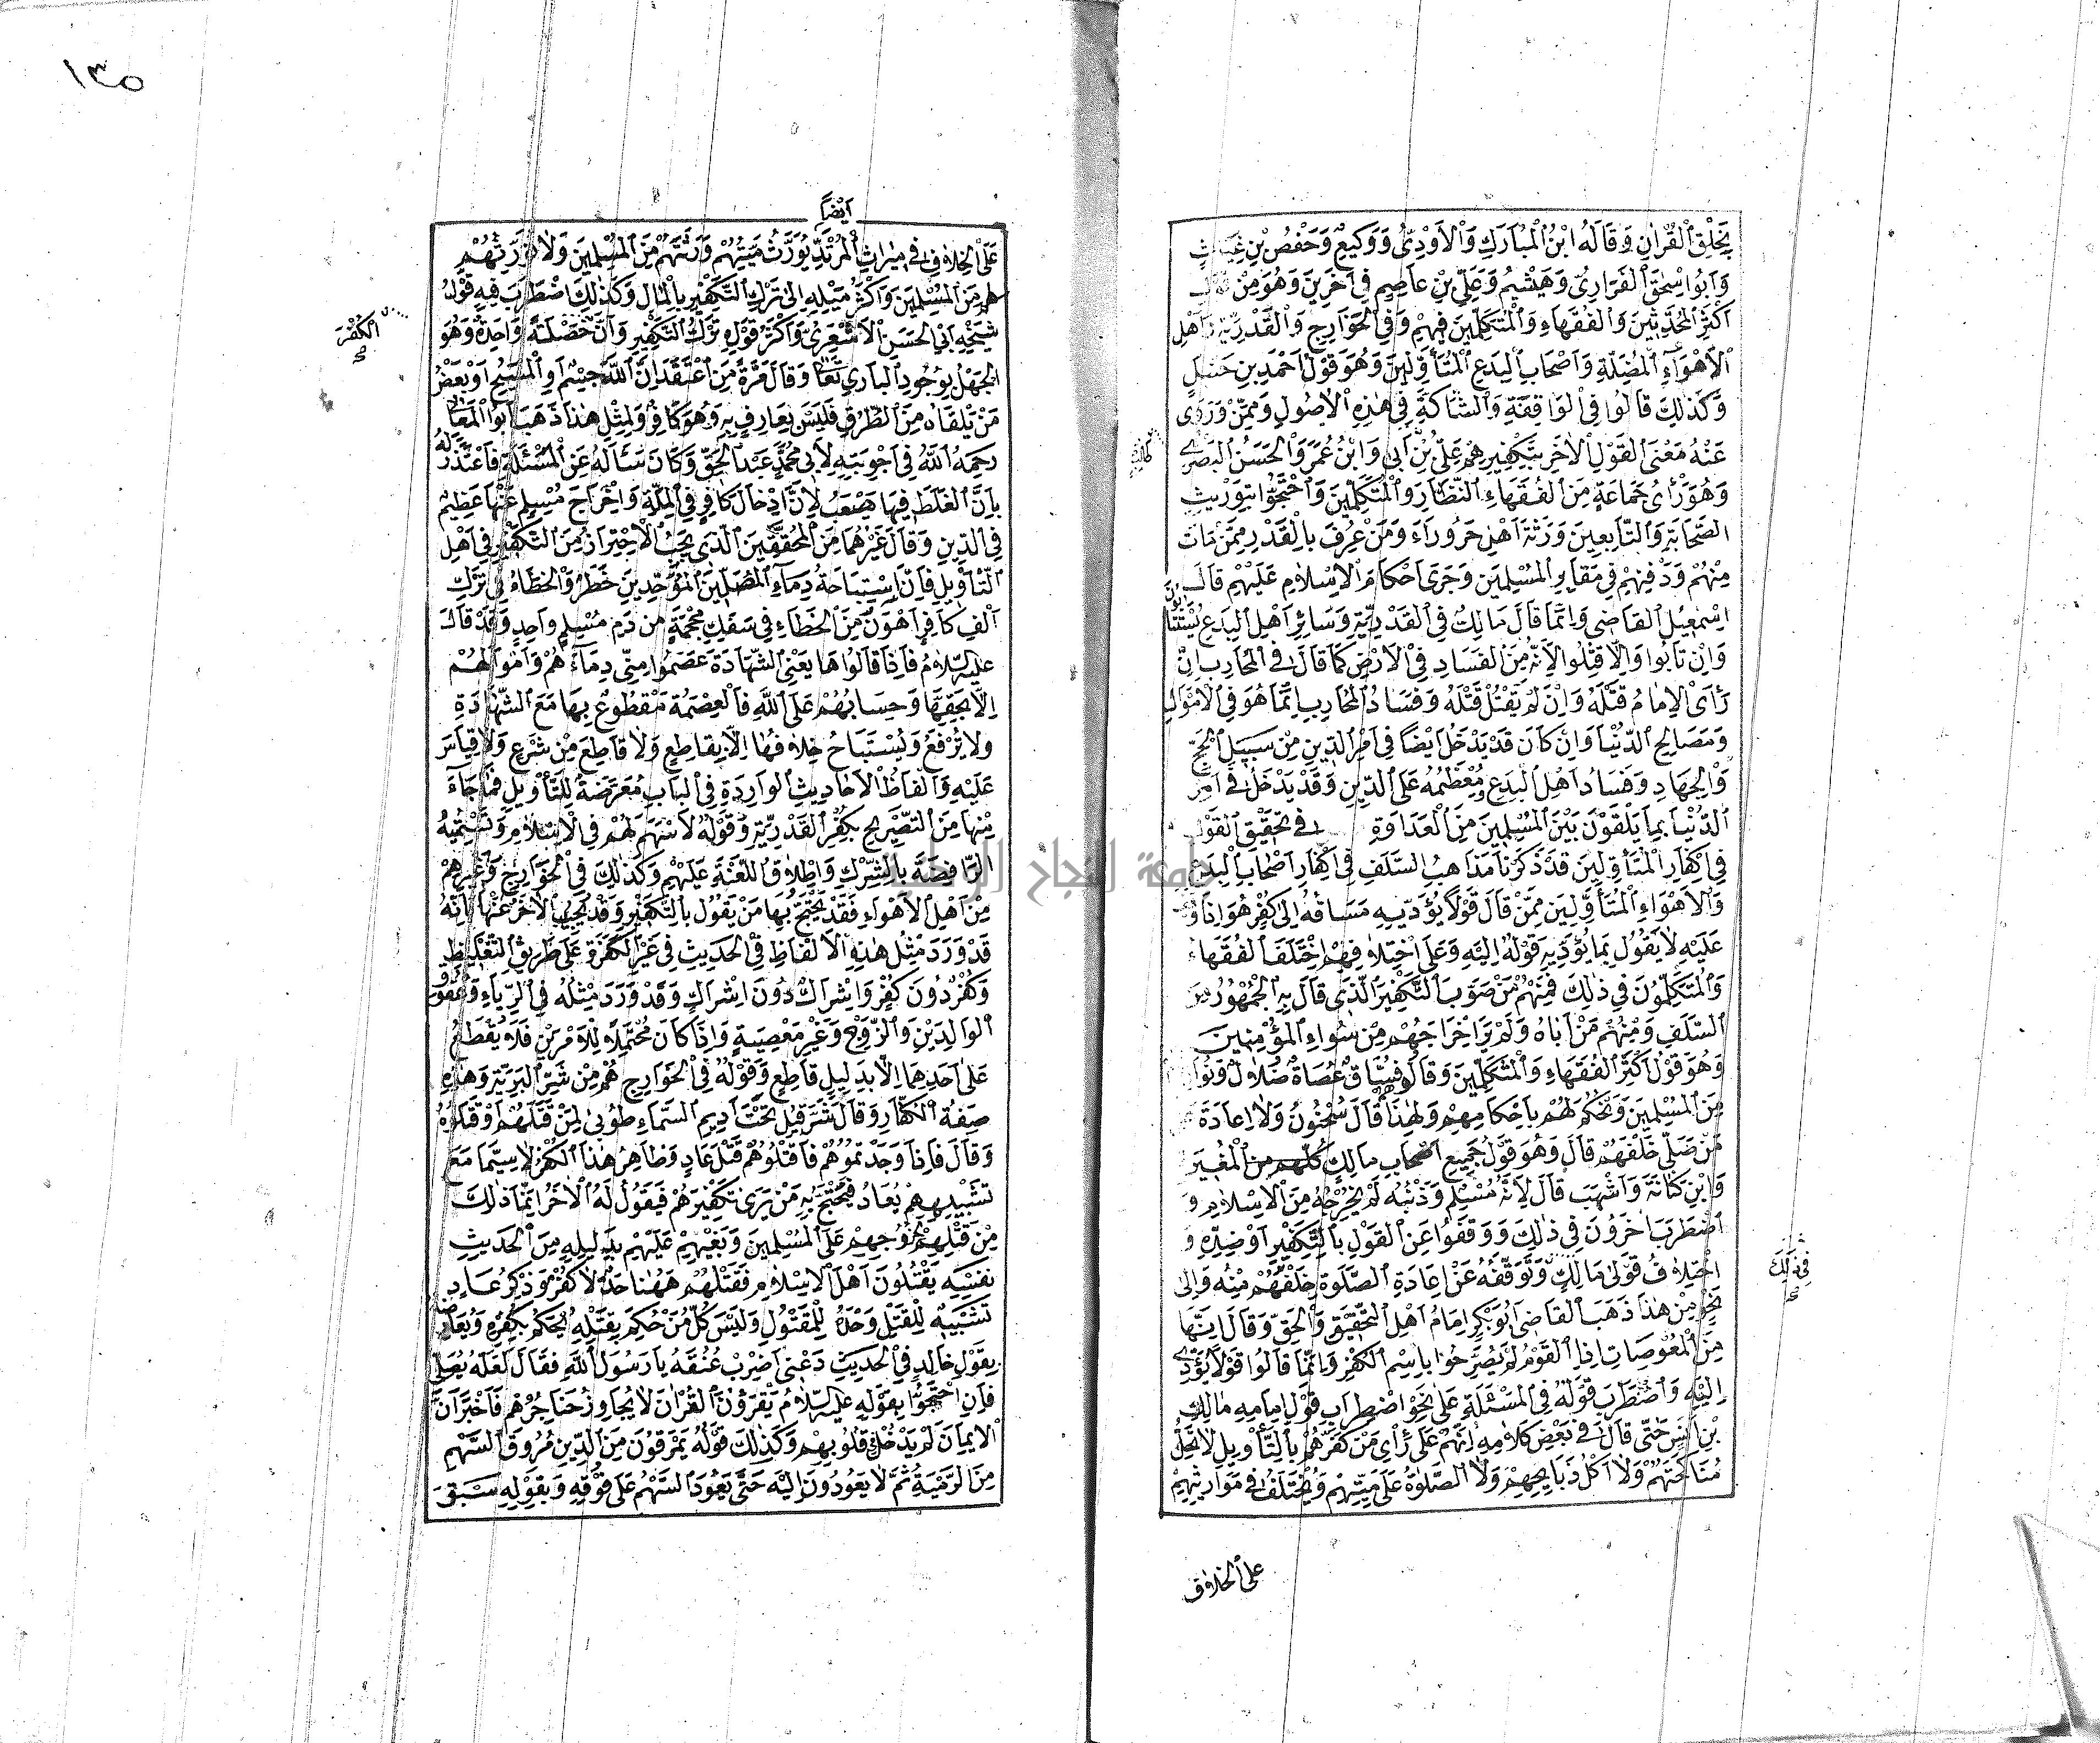 بِخَلْقِ الْقُرْاٰنِ وَقَالَهُ ابْنُ الْمُبَارَكِ وَالْاَوْدِىُّ وَوَكِيعٌ وَحَفْصُ بْنُ غِيَاثٍ
وَاَبُوا سْحٰقَ الْفَزَارِىُّ وَهُشَيْمٌ وَعَلِىُّ بْنُ عَاصِمٍ فِى اٰخَرِينَ وَهُوَ مِنْ قَوْلِ
اَكْثَرِ الْمُحَدِّثِينَ وَالْفُقَهَاءِ وَالْمُتَكَلِّمِينَ فِيهِمْ وَفِى الْخَوَارِجِ وَالْقَدَرِيَّةِ وَاَهْلِ
الْاَهْوَاءِ الْمُضِلَّةِ وَاَصْحَابِ الْبِدَعِ الْمُتَأَوِّلِينَ وَهُوَ قَوْلُ اَحْمَدَ بْنِ حَنْبَلٍ
وَكَذٰلِكَ قَالُوا فِى الْوَاقِفَةِ وَالشَّاكَّةِ فِى هٰذِهِ الْاُصُولِ وَمِمَّنْ رُوِىَ
عَنْهُ مَعْنَى الْقَوْلِ الْاٰخَرِ بِتَرْكِ تَكْفِيرِهِمْ عَلِىُّ بْنُ اَبِى وَابْنُ عُمَرَ وَالْحَسَنُ الْبَصْرِىُّ
طَالِبٍ
وَهُوَ رَأْىُ جَمَاعَةٍ مِنَ الْفُقَهَاءِ النُّظَّارِ وَالْمُتَكَلِّمِينَ وَاحْتَجُّوا بِتَوْرِيثِ
الصَّحَابَةِ وَالتَّابِعِينَ وَرَثَةَ اَهْلِ حَرُورَاءَ وَمَنْ عُرِفَ بِالْقَدَرِ مِمَّنْ مَاتَ
مِنْهُمْ وَدَفْنِهِمْ فِى مَقَابِرِ الْمُسْلِمِينَ وَجَرْىِ اَحْكَامِ الْاِسْلَامِ عَلَيْهِمْ قَالَ
اِسْمٰعِيلُ الْقَاضِى وَاِنَّمَا قَالَ مَالِكٌ فِى الْقَدَرِيَّةِ وَسَائِرِ اَهْلِ الْبِدَعِ يُسْتَتَابُونَ
وَاِنْ تَابُوا وَاِلَّا قُتِلُوا لِاَنَّهُ مِنَ الْفَسَادِ فِى الْاَرْضِ كَمَا قَالَ فِى الْمُحَارِبِ اِنْ
رَأَى الْاِمَامُ قَتْلَهُ وَاِنْ لَمْ يَقْتُلْ قَتَلَهُ وَفَسَادُ الْمُحَارِبِ اِنَّمَا هُوَ فِى الْاَمْوَالِ
وَمَصَالِحِ الدُّنْيَا وَاِنْ كَانَ قَدْ يَدْخُلُ اَيْضًا فِى اَمْرِ الدِّينِ مِنْ سَبِيلِ الْحَجِّ
وَالْجِهَادِ وَفَسَادُ اَهْلِ الْبِدَعِ مُعْظَمُهُ عَلَى الدِّينِ وَقَدْ يَدْخُلُ فِى اَمْرِ
الدُّنْيَا بِمَا يَلْقَوْنَ بَيْنَ الْمُسْلِمِينَ مِنَ الْعَدَاوَةِ فِى تَحْقِيقِ الْقَوْلِ
فِى اِكْفَارِ الْمُتَأَوِّلِينَ قَدْ ذَكَرْنَا مَذَاهِبَ السَّلَفِ فِى اِكْفَارِ اَصْحَابِ الْبِدَعِ
وَالْاَهْوَاءِ الْمُتَأَوِّلِينَ مِمَّنْ قَالَ قَوْلًا يُؤَدِّيهِ مَسَاقُهُ اِلٰى كُفْرٍ هُوَ اِذَا وُقِفَ
عَلَيْهِ لَا يَقُولُ بِمَا يُؤَدِّيهِ قَوْلُهُ اِلَيْهِ وَعَلَى اخْتِلَافِهِمْ اخْتَلَفَ الْفُقَهَاءُ
وَالْمُتَكَلِّمُونَ فِى ذٰلِكَ فَمِنْهُمْ مَنْ صَوَّبَ التَّكْفِيرَ الَّذِى قَالَ بِهِ الْجُمْهُورُ مِنَ
السَّلَفِ وَمِنْهُمْ مَنْ اَبَاهُ وَلَمْ يَرَ اِخْرَاجَهُمْ مِنْ سَوَاءِ الْمُؤْمِنِينَ
وَهُوَ قَوْلُ اَكْثَرِ الْفُقَهَاءِ وَالْمُتَكَلِّمِينَ وَقَالُوا فُسَّاقٌ عُصَاةٌ ضُلَّالٌ وَنُوَارِثُهُمْ
مِنَ الْمُسْلِمِينَ وَنَحْكُمُ لَهُمْ بِاَحْكَامِهِمْ وَلِهٰذَا قَالَ سُحْنُونٌ وَلَا اِعَادَةَ
مَنْ صَلَّى خَلْفَهُمْ قَالَ وَهُوَ قَوْلُ جَمِيعِ اَصْحَابِ مَالِكٍ كُلِّهِمْ مِنَ الْمُغِيرَةِ
وَابْنِ كَنَانَةَ وَاَشْهَبَ قَالَ لِاَنَّهُ مُسْلِمٌ وَذَنْبُهُ لَمْ يُخْرِجْهُ مِنَ الْاِسْلَامِ وَ
اضْطَرَبَ اٰخَرُونَ فِى ذٰلِكَ وَوَقَفُوا عَنِ الْقَوْلِ بِالتَّكْفِيرِ اَوْ ضِدِّهِ وَ
اخْتِلَافُ قَوْلَىْ مَالِكٍ وَتَوَقُّفُهُ عَنْ اِعَادَةِ الصَّلٰوةِ خَلْفَهُمْ مِنْهُ وَاِلٰى
فِى ذٰلِكَ
نَحْوٍ مِنْ هٰذَا ذَهَبَ الْقَاضِى اَبُو بَكْرٍ اِمَامُ اَهْلِ التَّحْقِيقِ وَالْحَقِّ وَقَالَ اِنَّهَا
مِنَ الْمُعْوِصَاتِ اِذِ الْقَوْمُ لَمْ يُصَرِّحُوا بِاسْمِ الْكُفْرِ وَاِنَّمَا قَالُوا قَوْلًا يُؤَدِّى
اِلَيْهِ وَاضْطَرَبَ قَوْلُهُ فِى الْمَسْئَلَةِ عَلٰى نَحْوِ اضْطِرَابِ قَوْلِ اِمَامِهِ مَالِكِ
بْنِ اَنَسٍ حَتّٰى قَالَ فِى بَعْضِ كَلَامِهِ اِنَّهُمْ عَلٰى رَأْىِ مَنْ كَفَّرَهُمْ بِالتَّأْوِيلِ لَا تَحِلُّ
مُنَاكَحَتُهُمْ وَلَا اَكْلُ ذَبَايِحِهِمْ وَلَا الصَّلٰوةُ عَلٰى مَيِّتِهِمْ وَيُخْتَلَفُ فِى مَوَارِيثِهِمْ
على الخلاف
١٣٥
اَيْضًا
عَلَى الْخِلَافِ فِى مِيرَاثِ الْمُرْتَدِّ يُوَرَّثُ مَيِّتُهُمْ وَرَثَتَهُمْ مِنَ الْمُسْلِمِينَ وَلَا نُوَرِّثُهُمْ
هُمْ مِنَ الْمُسْلِمِينَ وَاَكْثَرُ مَيْلِهِ اِلٰى تَرْكِ التَّكْفِيرِ بِالْمَالِ وَكَذٰلِكَ اضْطَرَبَ فِيهِ قَوْلُ
شَيْخِهِ اَبِى الْحَسَنِ الْاَشْعَرِىِّ وَاَكْثَرُ قَوْلِهِ تَرْكُ التَّكْفِيرِ وَاَنَّ خَصْلَةٌ وَاحِدَةٌ وَهُوَ
الْكُفْرَ
الْجَهْلُ بِوُجُودِ الْبَارِى تَعَالٰى وَقَالَ مَرَّةً مَنِ اعْتَقَدَ اِنَّ اللّٰهَ جِسْمٌ اَوِ الْمَسِيحُ اَوْ بَعْضُ
مَنْ يَلْقَاهُ مِنَ الطُّرُقِ فَلَيْسَ بِعَارِفٍ بِهِ وَهُوَ كَافِرٌ وَلِمِثْلِ هٰذَا ذَهَبَ اَبُو الْمَعَالِى
رَحِمَهُ اللّٰهُ فِى اَجْوِبَتِهِ لِاَبِى مُحَمَّدٍ عَبْدِ الْحَقِّ وَكَانَ سَأَلَهُ عَنِ الْمَسْئَلَةِ فَاعْتَذَرَ لَهُ
بِاَنَّ الْغَلَطَ فِيهَا يَصْعُبُ لِاَنَّ اِدْخَالَ كَافِرٍ فِى الْمِلَّةِ وَاِخْرَاجَ مُسْلِمٍ عَنْهَا عَظِيمٌ
فِى الدِّينِ وَقَالَ غَيْرُهُمَا مِنَ الْمُحَقِّقِينَ الَّذِى يَجِبُ الْاِحْتِرَازُ مِنَ التَّكْفِيرِ فِى اَهْلِ
التَّأْوِيلِ فَاِنَّ اسْتِبَاحَةَ دِمَاءِ الْمُصَلِّينَ الْمُوَحِّدِينَ خَطَرٌ وَالْخَطَاءُ فِى تَرْكِ
اَلْفِ كَافِرٍ اَهْوَنُ مِنَ الْخَطَاءِ فِى سَفْكِ مِحْجَمَةٍ مِنْ دَمِ مُسْلِمٍ وَاحِدٍ وَقَدْ قَالَ
عليه السّلامُ فَاِذَا قَالُوهَا يَعْنِى الشَّهَادَةَ عَصَمُوا مِنِّى دِمَاءَهُمْ وَاَمْوَالَهُمْ
اِلَّا بِحَقِّهَا وَحِسَابُهُمْ عَلَى اللّٰهِ فَالْعِصْمَةُ مَقْطُوعٌ بِهَا مَعَ الشَّهَادَةِ
وَلَا يُرْفَعُ وَيُسْتَبَاحُ خِلَافُهَا اِلَّا بِقَاطِعٍ وَلَا قَاطِعَ مِنْ شَرْعٍ وَلَا قِيَاسَ
عَلَيْهِ وَاَلْفَاظُ الْاَحَادِيثِ الْوَارِدَةِ فِى الْبَابِ مُعَرَّضَةٌ لِلتَّأْوِيلِ فَمَا جَاءَ
مِنْهَا مِنَ التَّصْرِيحِ بِكُفْرِ الْقَدَرِيَّةِ وَقَوْلُهُ لَا سَهْمَ لَهُمْ فِى الْاِسْلَامِ وَتَسْمِيَتُهُ
الرَّافِضَةَ بِالشِّرْكِ وَاِطْلَاقُ اللَّعْنَةِ عَلَيْهِمْ وَكَذٰلِكَ فِى الْخَوَارِجِ وَغَيْرِهِمْ
مِنْ اَهْلِ الْاَهْوَاءِ فَقَدْ يَحْتَجُّ بِهَا مَنْ يَقُولُ بِالتَّكْفِيرِ وَقَدْ يُجِيبُ الْاٰخَرُ عَنْهَا بِاَنَّهُ
قَدْ وَرَدَ مِثْلُ هٰذِهِ الْاَلْفَاظِ فِى الْحَدِيثِ فِى غَيْرِ الْكَفَرَةِ عَلٰى طَرِيقِ التَّغْلِيظِ
وَكُفْرٌ دُونَ كُفْرٍ وَاِشْرَاكٌ دُونَ اِشْرَاكٍ وَقَدْ وَرَدَ مِثْلُهُ فِى الرِّيَاءِ وَعُقُوقِ
الْوَالِدَيْنِ وَالزَّوْجِ وَغَيْرِ مَعْصِيَةٍ وَاِذَا كَانَ مُحْتَمِلًا لِلْاَمْرَيْنِ فَلَا يُقْطَعُ
عَلٰى اَحَدِهِمَا اِلَّا بِدَلِيلٍ قَاطِعٍ وَقَوْلُهُ فِى الْخَوَارِجِ هُمْ مِنْ شَرِّ الْبَرِيَّةِ وَهٰذِهِ
صِفَةُ الْكُفَّارِ وَقَالَ شَرُّ قَبِيلٍ تَحْتَ اَدِيمِ السَّمَاءِ طُوبٰى لِمَنْ قَتَلَهُمْ اَوْ قَتَلُوهُ
وَقَالَ فَاِذَا وَجَدْتُمُوهُمْ فَاقْتُلُوهُمْ قَتْلَ عَادٍ وَظَاهِرُ هٰذَا الْكُفْرُ لَا سِيَّمَا مَعَ
تَشْبِيهِهِمْ بِعَادٍ فَيَحْتَجُّ بِهِ مَنْ يَرٰى تَكْفِيرَهُمْ فَيَقُولُ لَهُ الْاٰخَرُ اِنَّمَا ذٰلِكَ
مِنْ قَتْلِهِمْ لِخُرُوجِهِمْ عَلَى الْمُسْلِمِينَ وَبَغْيِهِمْ عَلَيْهِمْ بِدَلِيلِهِ مِنَ الْحَدِيثِ
نَفْسِهِ يَقْتُلُونَ اَهْلَ الْاِسْلَامِ فَقَتْلُهُمْ هٰهُنَا حَدٌّ لَا كُفْرٌ وَذِكْرُ عَادٍ
تَشْبِيهٌ لِلْقَتْلِ وَحِلِّهِ لَا لِلْمَقْتُولِ وَلَيْسَ كُلُّ مَنْ حُكِمَ بِقَتْلِهِ يُحْكَمُ بِكُفْرِهِ وَيُعَارَضُ
بِقَوْلِ خَالِدٍ فِى الْحَدِيثِ دَعْنِى اَضْرِبْ عُنُقَهُ يَا رَسُولَ اللّٰهِ فَقَالَ لَعَلَّهُ يُصَلِّى
فَاِنِ احْتَجُّوا بِقَوْلِهِ عليه السّلامُ يَقْرَؤُنَ الْقُرْاٰنَ لَا يُجَاوِزُ حَنَاجِرَهُمْ فَاَخْبَرَ اَنَّ
الْاِيمَانَ لَمْ يَدْخُلْ قُلُوبَهُمْ وَكَذٰلِكَ قَوْلُهُ يَمْرُقُونَ مِنَ الدِّينِ مُرُوقَ السَّهْمِ
مِنَ الرَّمِيَّةِ ثُمَّ لَا يَعُودُونَ اِلَيْهِ حَتّٰى يَعُودَ السَّهْمُ عَلٰى فُوقِهِ وَبِقَوْلِهِ سَبَقَ
جامعة النجاح الوطنية